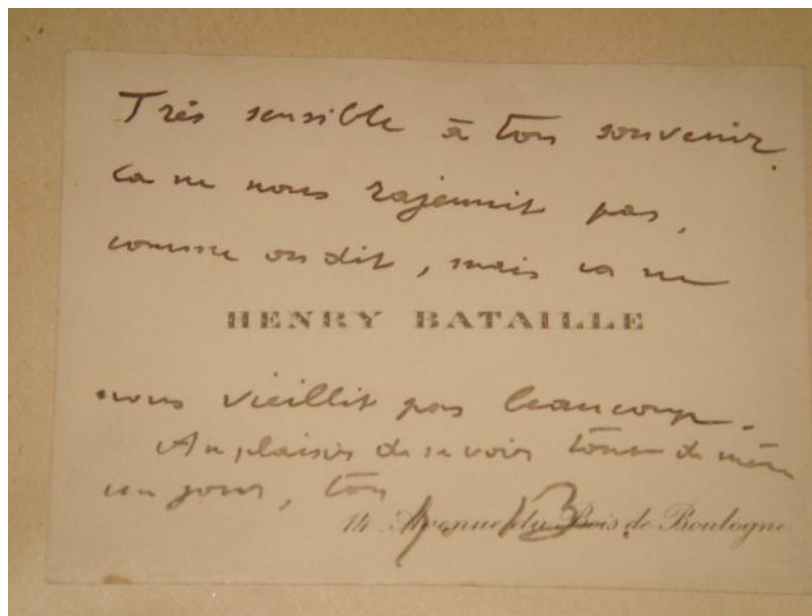 Très sensible à ton souvenir.
ça ne nous rajeunit pas,
comme on dit, mais ça ne
HENRY BATAILLE
nous vieillit pas beaucoup.
Au plaisir de se voir tout de même
un jour, ton
H. B.
14 Avenue du Bois de Boulogne